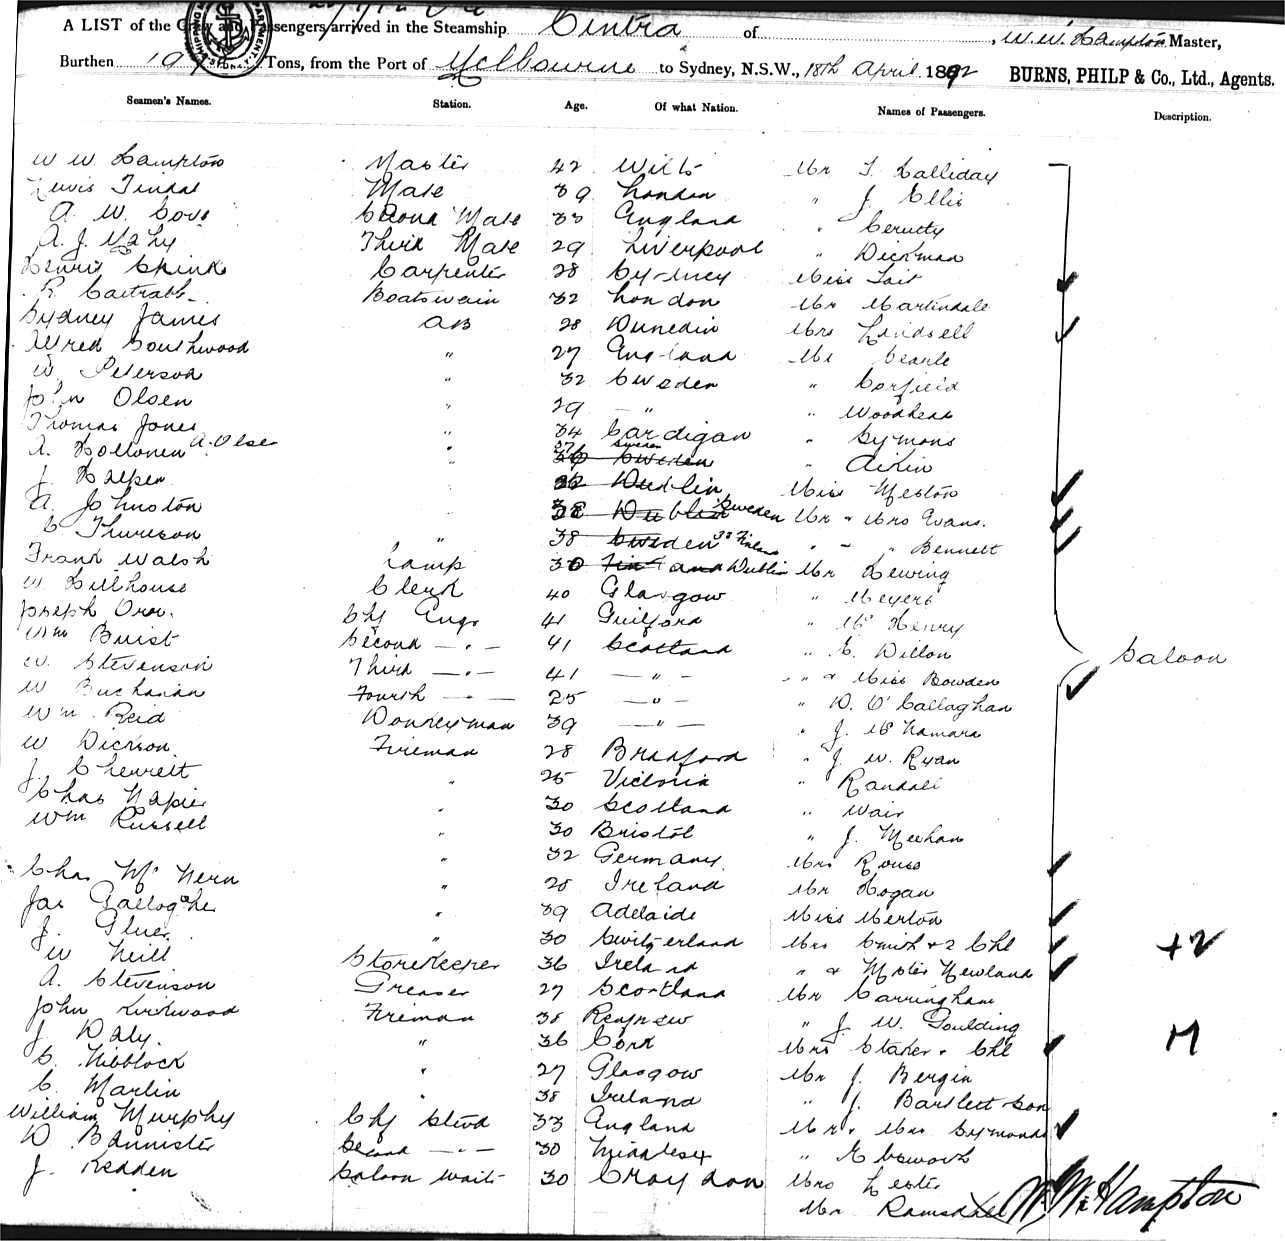 A LIST of the Crew and Passengers arrived in the Steamship Cintra of , W. W. Hampton Master,
Burthen Tons, from the Port of Melbourne to Sydney, N.S.W., 18th April 1892 BURNS, PHILP & Co., Ltd., Agents.
Seamen's Names. Station. Age. Of what Nation. Names of Passengers. Description.
W W Hampton Master 42 Wilts Mr T. Halliday
Lewis Tindal Mate 39 London " J. Ellis
A. W. Mate 33 England " Cerutty
A. J. Mahy Third Mate 29 Liverpool " Dickman
Henry Spink Carpenter 28 Sydney Miss Tait
R. Boatswain 32 London Mr Martindale
Sydney James AB 28 Dunedin Mrs Lindsell
Alfred Southwood " 27 England Mr Searle
W. Peterson " 32 Sweden " Corfield
John Olsen " 29 — " — " Woodhead
Thomas Jones " 34 Cardigan " Symons
A. Holtonen A. Olsen " 37 Sweden " Aikin
J. Halpen " 32 Dublin Miss Meston
A. Johnston 38 Dublin Sweden Mr & Mrs Evans.
C. Thureson " 38 Sweden 38 Finland " " " Bennett
Frank Walsh Lamp 30 Finland Dublin Mr Hewing
W Hillhouse Clerk 40 Glasgow " Meyers
Joseph Orr. Chf Engr 41 Guilford " Mc Henry
Wm Buist Second — " — 41 Scotland " C. Dillon
W. Stevenson Third — " — 41 — " — " & Miss Bowden
W Buchanan Fourth — " — 25 — " — " D. O'Callaghan
Wm. Reid Donkeyman 39 — " — " J. McNamara
W Dickson Fireman 28 Bradford " J. W. Ryan
J. Chewett " 25 Victoria " Randall
Chas Napier " 30 Scotland " Wair
Wm Russell " 30 Bristol " J. Meehan
" 32 Germany Mrs Rouse
Chas Mc Nern " 28 Ireland Mr Hogan
Jas Gallogher " 39 Adelaide Miss Merton
J. " 30 Switzerland Mrs Smith + 2 Chl +2
W Neill Storekeeper 36 Ireland " & Mstr Newland
A. Stevenson Greaser 27 Scotland Mr Carringham
John Kirkwood Fireman 38 Renfrew " J. W. Goulding
J. Daly. " 36 Cork Mrs Staker & Chl M
C. Nibblock " 27 Glasgow Mr J. Bergin
C. Martin " 38 Ireland " J. Bartlett Son
William Murphy Chf Stwd 33 England Mr & Mrs Symonds
D Bannister Second — " — 30 Middlesex " Ebsworth
J. Redden Saloon Wait 30 Croydon Mrs Lester
Mr Ramsdale
Saloon
W. W. Hampton